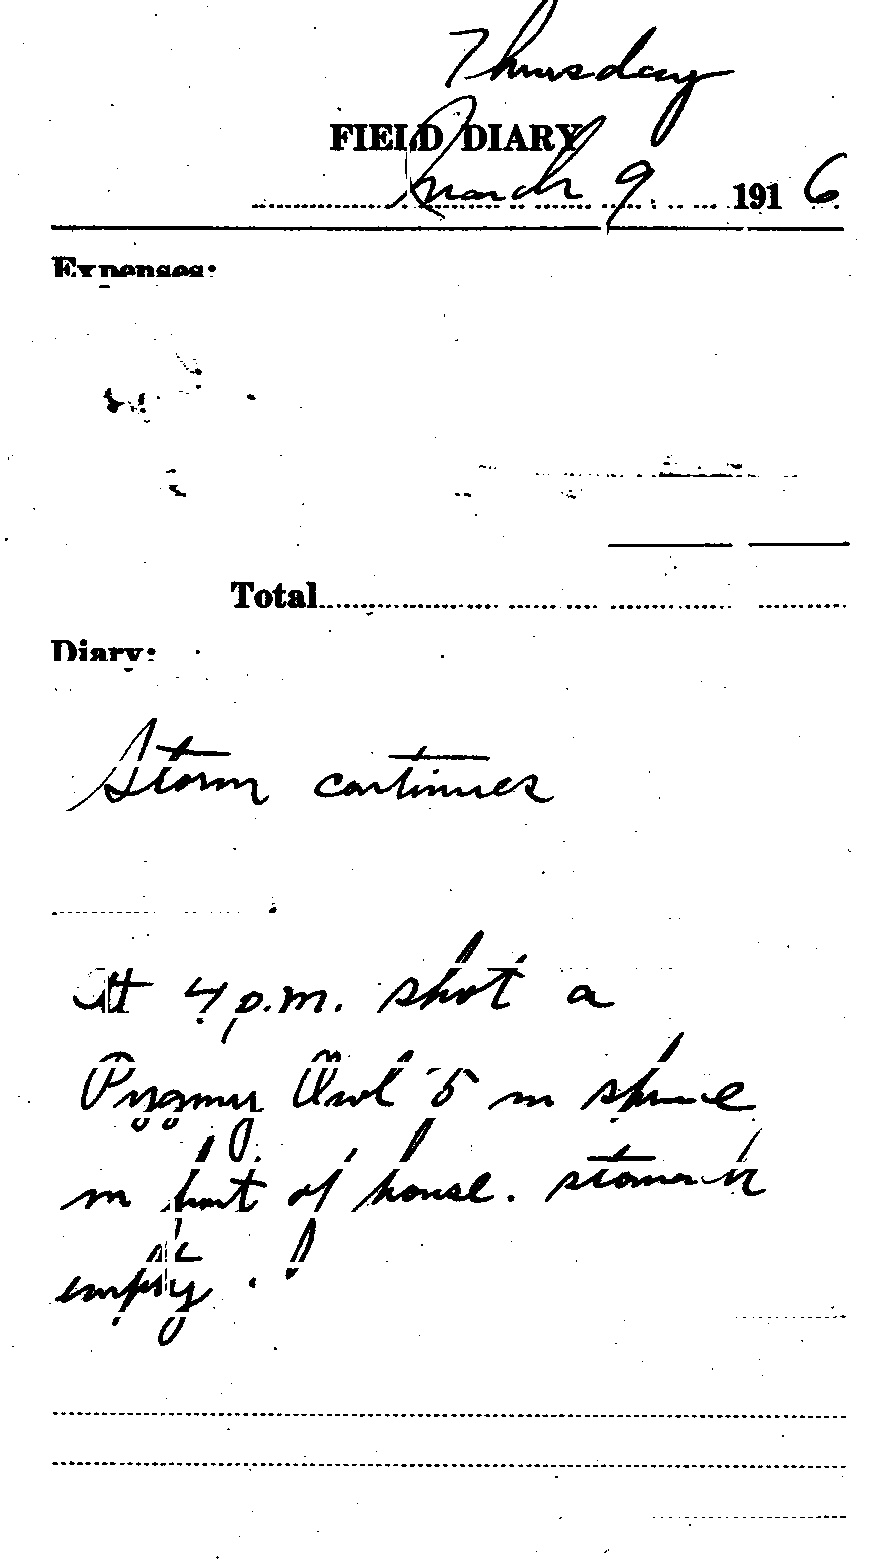 Thursday
FIELD DIARY
March 9 1916
Expenses:
Total
Diary:
Storm continues
At 4 p.m. shot a
Pygmy Owl in spruce
in front of house. stomach
empty.